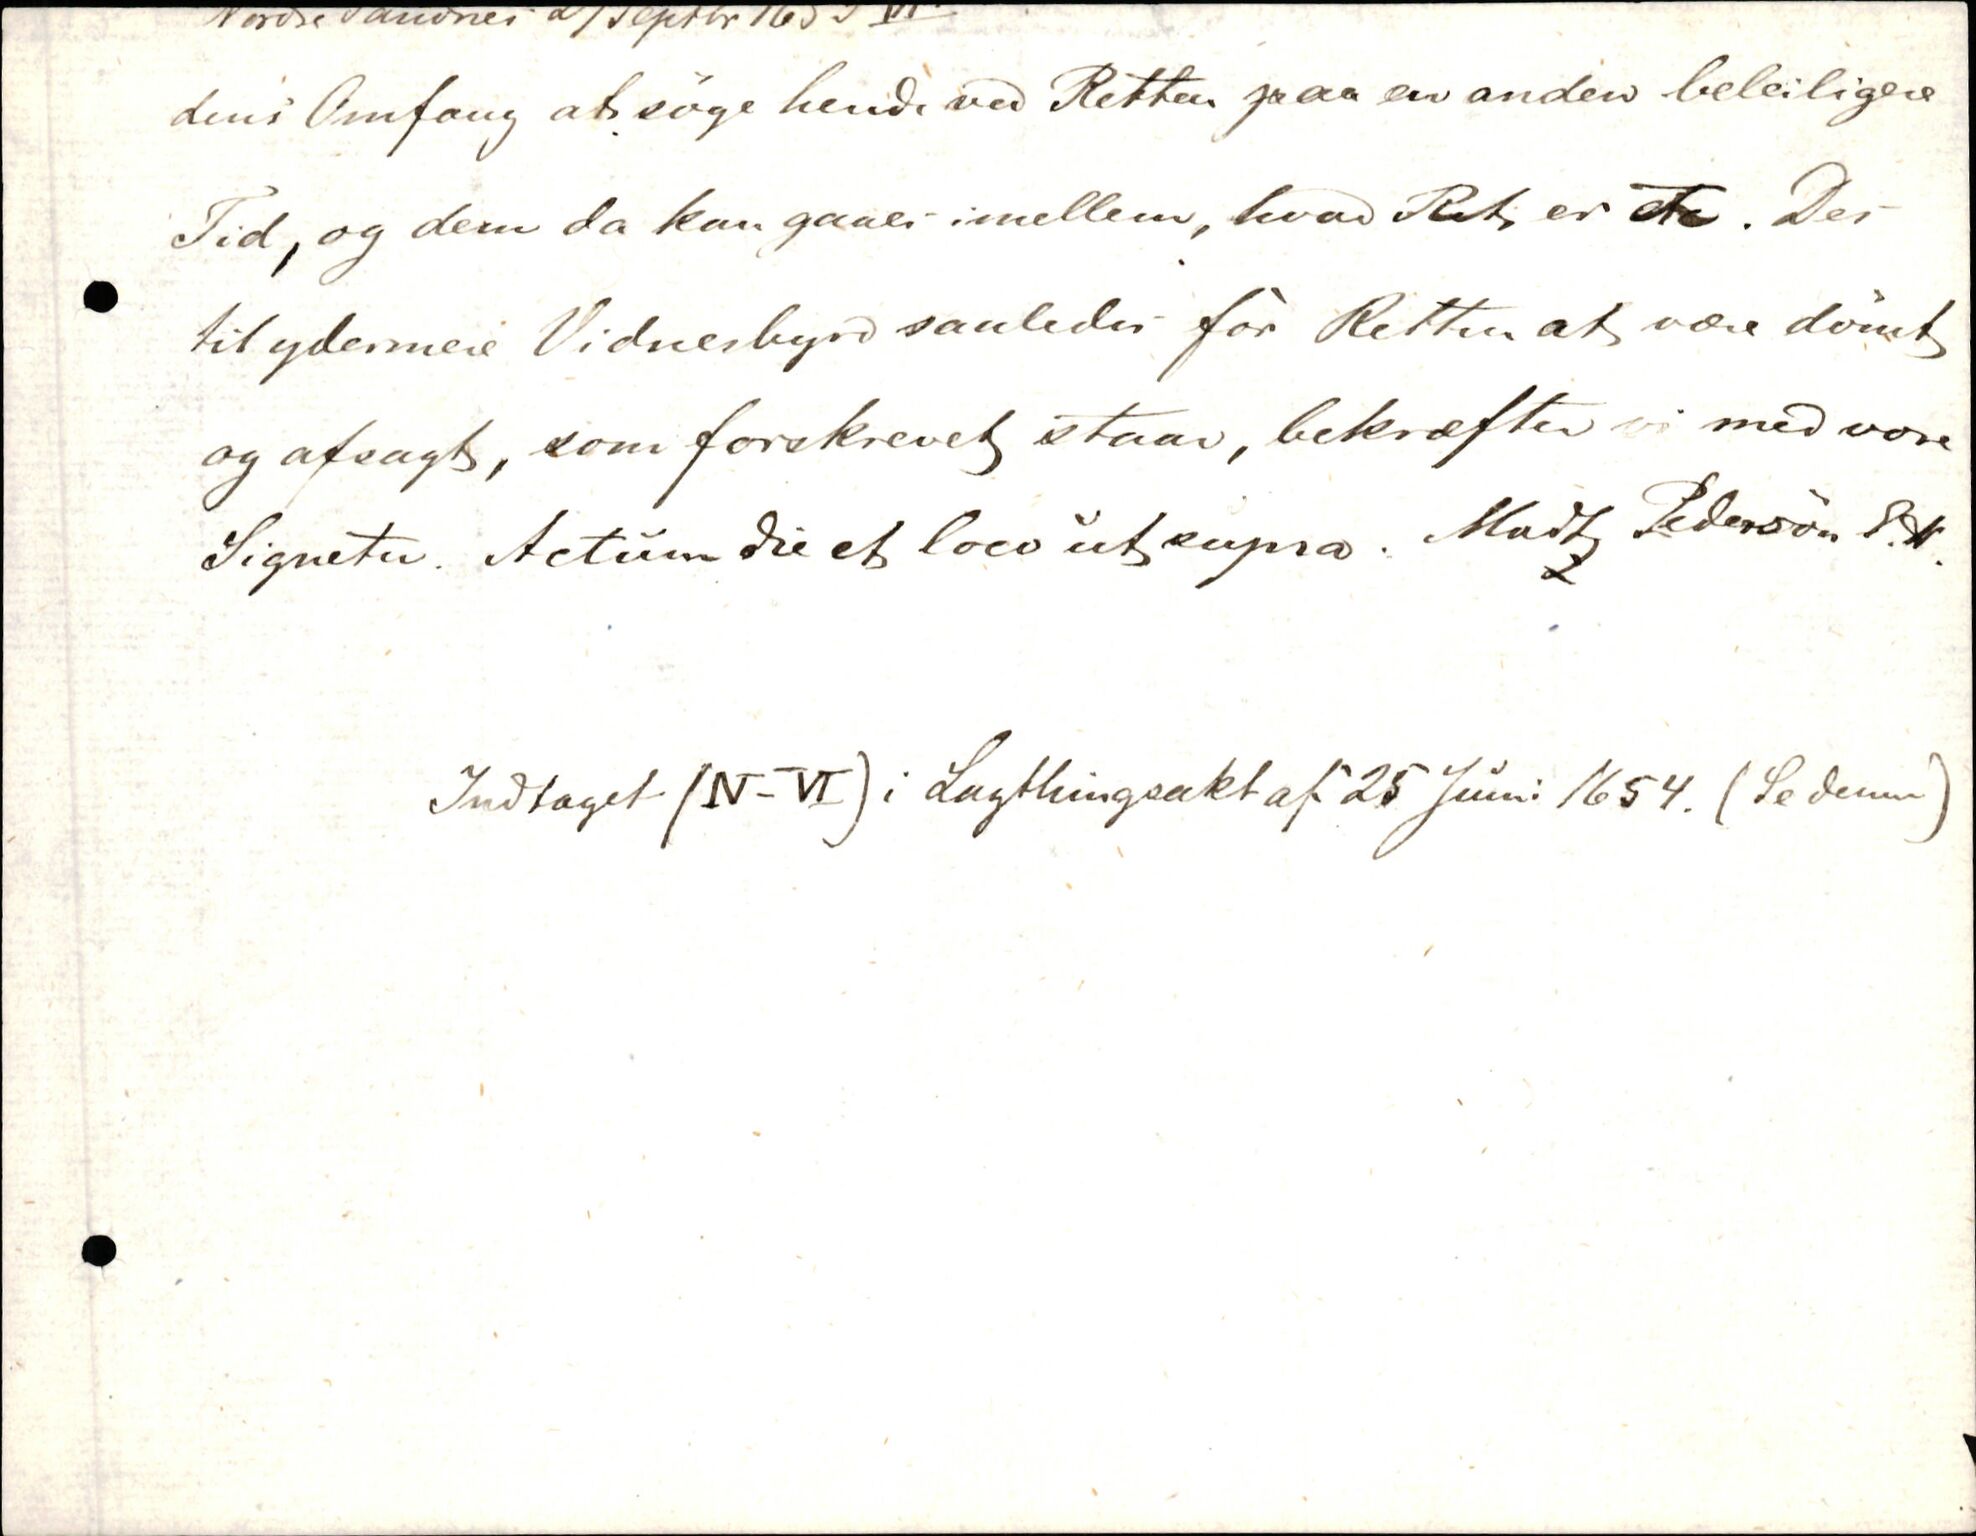 Nordre Sandnes 27 Septbr 1653 VI.
dens Omfang at søge hende ved Retten paa en anden beleiligere
Tid, og dem da kan gaaes imellem, hvad Ret er etc. Des
til ydermere Vidnesbyrd saaledes for Retten at være dömt
og afsagt, som forskrevet staar, bekræfter vi med vore
Signeter. Actum die et loco ut supra. Madtz Pedersön
Indtaget (IV-VI) i Lagthingsakt af 25 Juni 1654. (Se denne)